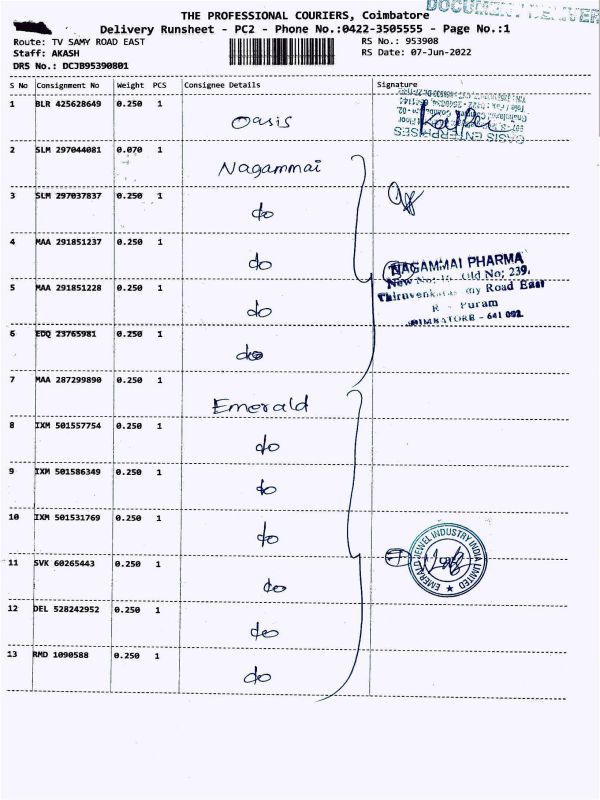 DOCUMENT DELIVER
THE PROFESSIONAL COURIERS, Coimbatore
Delivery Runsheet - PC2 - Phone No.:0422-3505555 - Page No.:1
Route: TV SAMY ROAD EAST
RS No.: 953908
Staff: AKASH
RS Date: 07-Jun-2022
DRS No.: DCJB95390801
S No Consignment No Weight PCS Consignee Details Signature
1 BLR 425628649 0.250 1 Oasis
OASIS ENTERPRISES
2 SLM 297044081 0.070 1 Nagammai
3 SLM 297037837 0.250 1 do
4 MAA 291851237 0.250 1 do
5 MAA 291851228 0.250 1 do
NAGAMMAI PHARMA
New No; Old No; 239,
my Road East
Puram
COIMBATORE - 641 002.
6 EDQ 23765981 0.250 1 do
7 MAA 287299890 0.250 1 Emerald
8 IXM 501557754 0.250 1 do
9 IXM 501586349 0.250 1 do
10 IXM 501531769 0.250 1 do
11 SVK 60265443 0.250 1 do
7
EMERALD JEWEL INDUSTRY INDIA LIMITED
12 DEL 528242952 0.250 1 do
13 RMD 1090588 0.250 1 do